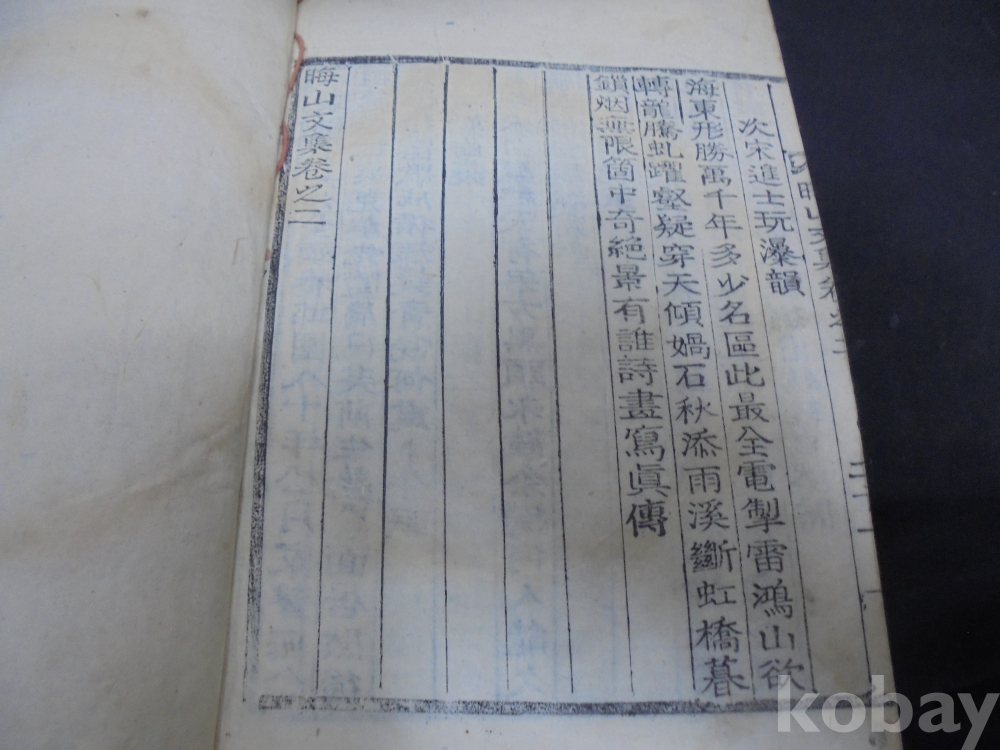 次宋進士玩瀑韻
海東形勝萬千年多少名區此最全電掣雷鴻山欲
轉龍騰虬躍壑疑穿天傾媧石秋添雨溪斷虹橋暮
鎖烟無限箇中奇絕景有誰詩畫寫眞傳
晦山文集卷之二
kobay